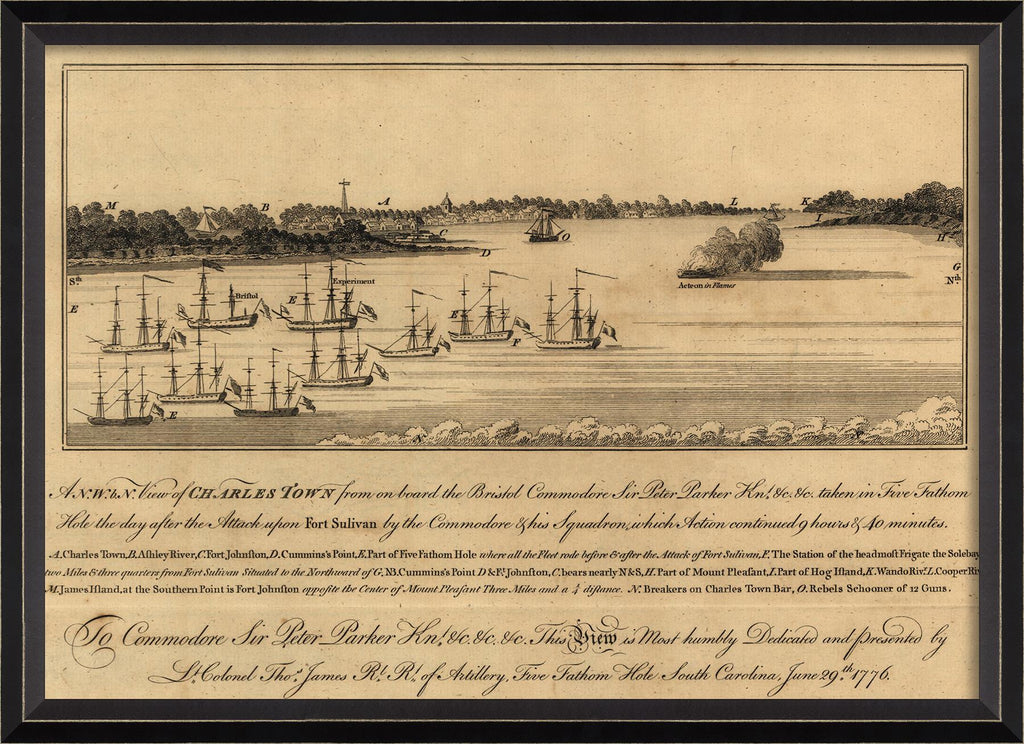 M
B
A
L
K
I
C
O
D
H
G
S.th
Bristol
Experiment
Acteon in Flames
N.th
E
E
E
F
E
N
N
A N.W.b.N. View of CHARLES TOWN from on board the Bristol Commodore Sir Peter Parker Kn.t &c. &c. taken in Five Fathom
Hole the day after the Attack upon Fort Sulivan by the Commodore & his Squadron, which Action continued 9 hours & 40 minutes.
A. Charles Town, B. Aſhley River, C. Fort Johnſton, D. Cummins's Point, E. Part of Five Fathom Hole where all the Fleet rode before & after the Attack of Fort Sulivan, F. The Station of the headmoſt Frigate the Solebay
two Miles & three quarters from Fort Sulivan Situated to the Northward of G, NB. Cummins's Point D & F.t Johnſton, C. bears nearly N & S, H. Part of Mount Pleaſant, I. Part of Hog Iſland, K. Wando Riv.r L. Cooper Riv
M. James Iſland, at the Southern Point is Fort Johnſton oppoſite the Center of Mount Pleaſant Three Miles and a ¼ diſtance. N. Breakers on Charles Town Bar, O. Rebels Schooner of 12 Guns.
To Commodore Sir Peter Parker Kn.t &c. &c. &c. This View is Most humbly Dedicated and Presented by
L.t Colonel Tho.s James R.l R.t of Artillery, Five Fathom Hole South Carolina, June 29.th 1776.